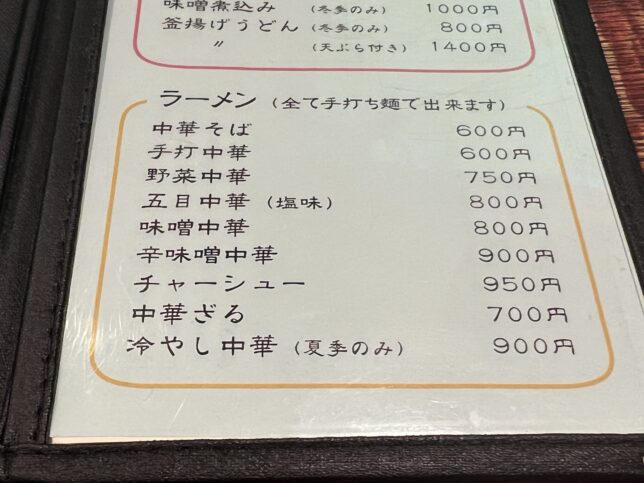 味噌煮込み (冬季のみ) 1000円
釜揚げうどん (冬季のみ) 800円
〃 (天ぷら付き) 1400円
ラーメン (全て手打ち麺で出来ます)
中華そば 600円
手打中華 600円
野菜中華 750円
五目中華 (塩味) 800円
味噌中華 800円
辛味噌中華 900円
チャーシュー 950円
中華ざる 700円
冷やし中華 (夏季のみ) 900円